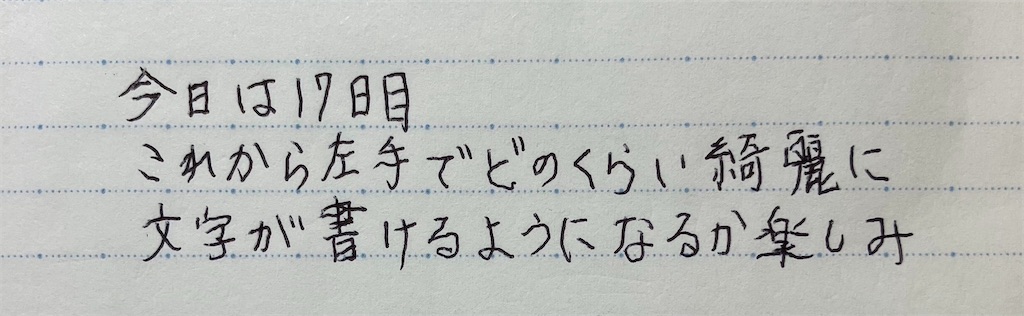 今日は17日目
これから左手でどのくらい綺麗に
文字が書けるようになるか楽しみ